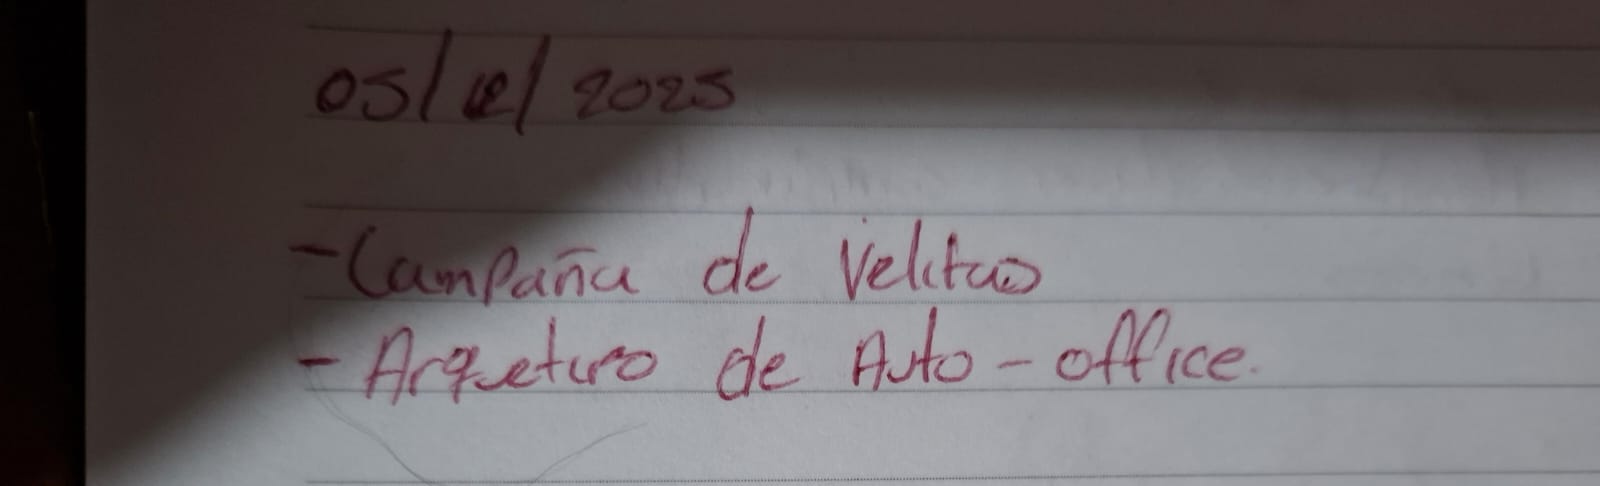 05/12/2025
-Campaña de Velitas
- Arquetipo de Auto-office.